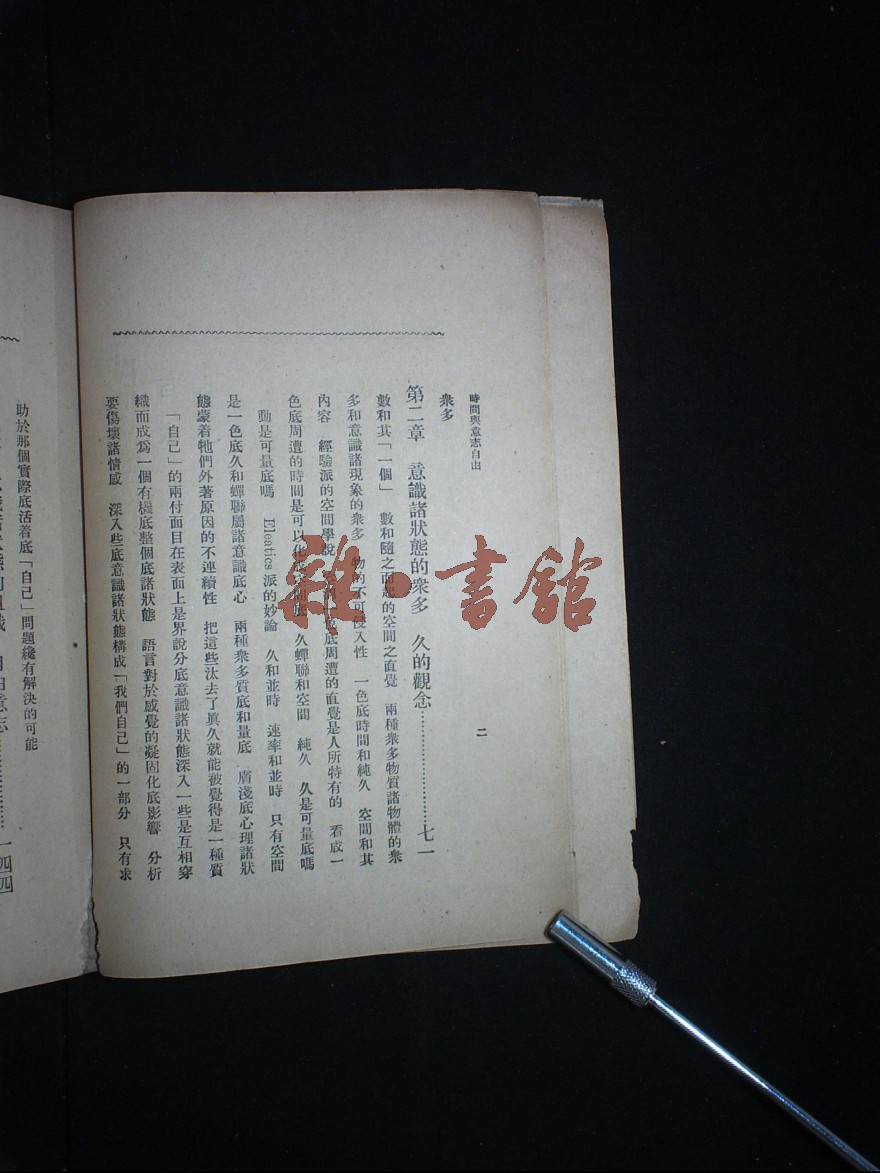 時間與意志自由
二
衆多
第二章 意識諸狀態的衆多 久的觀念……………………七一
數和其「一個」 數和隨之而起的空間之直覺 兩種衆多物質諸物體的衆
多和意識諸現象的衆多 物的不可侵入性 一色底時間和純久 空間和其
內容 經驗派的空間學說 一色底周遭的直覺是人所特有的 看成一
色底周遭的時間是可以化成空間底 久蟬聯和空間 純久 久是可量底嗎
動是可量底嗎 Eleatics 派的妙論 久和並時 速率和並時 只有空間
是一色底久和蟬聯屬諸意識底心 兩種衆多質底和量底 膚淺底心理諸狀
態蒙着牠們外著原因的不連續性 把這些汰去了眞久就能被覺得是一種質
「自己」的兩付面目在表面上是界說分底意識諸狀態深入一些是互相穿
織而成爲一個有機底整個底諸狀態 語言對於感覺的凝固化底影響 分析
要傷壞諸情感 深入些底意識諸狀態構成「我們自己」的一部分 只有求
助於那個實際底活着底「自己」問題纔有解決的可能
意志………………一四四
雜·書館